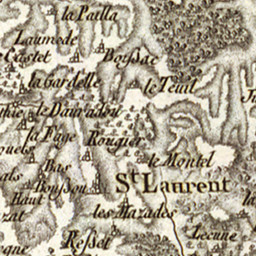 la Pailla
Laumede
Castet
Boyssac
la Gardelle
le Teuil
le Dauradou
la Fage
Rougier
le Montel
Bas
Boussou
St Laurent
Haut
les Mazades
zat
Lecune
Resset
ogne